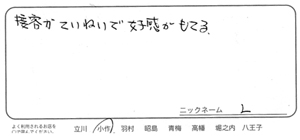 接客がていねいで好感がもてる。
ニックネーム L
よく利用されるお店を
立川 小作 羽村 昭島 青梅 高幡 堀之内 八王子